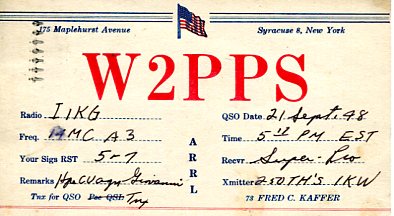 175 Maplehurst Avenue Syracuse 8, New York
W2PPS
Radio I1KG QSO Date 21 Sept. 48
Freq. 14 MC A3 Time 5 PM EST
Your Sigs RST 5-7 Recvr Super-Pro
Remarks Hpe CU agn Giovanni Xmitter 250TH'S 1KW
ARRL
Tnx for QSO Pse QSL Tnx 73 FRED C. KAFFER